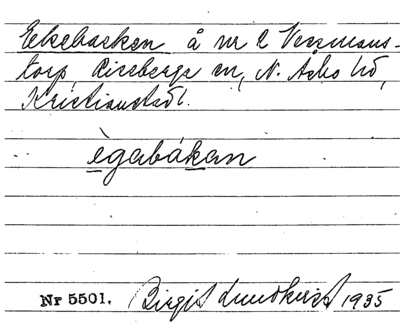 Ekebacken å nr 2 Vermans-
torp, Riseberga sn, N. Åsbo hd,
Kristianstads l.
ègabákan
Nr 5501. Birgit Lundkvist 1935